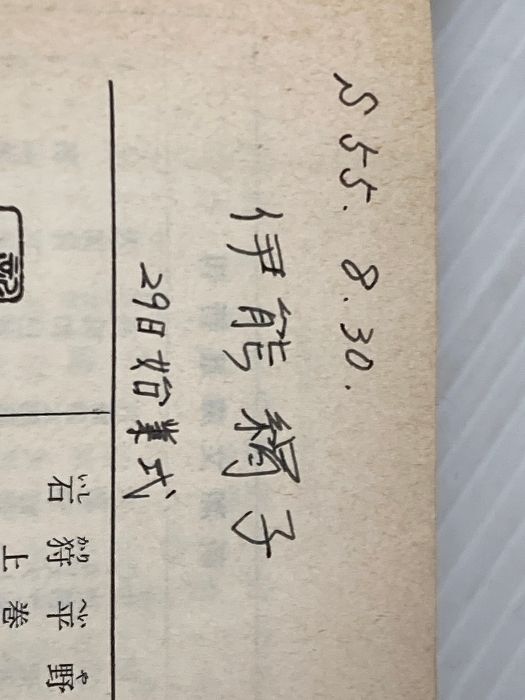 S 55. 8. 30.
伊能絹子
29日始業式
石狩平野
いしかりへいや
上巻